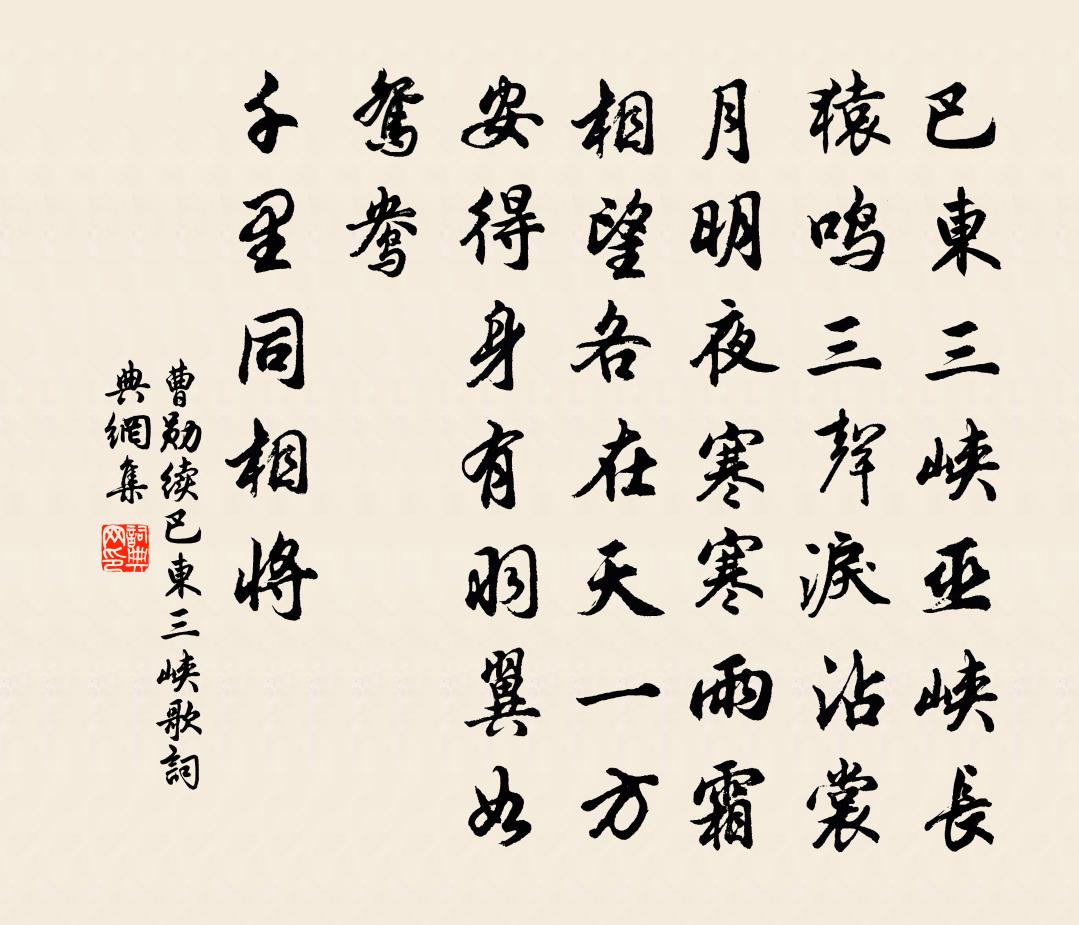 巴東三峽巫峽長
猿鳴三聲淚沾裳
月明夜寒寒雨霜
相望各在天一方
安得身有羽翼如
鴛鴦
千里同相將
曹勛續巴東三峽歌詞
典網集
詞典
网印